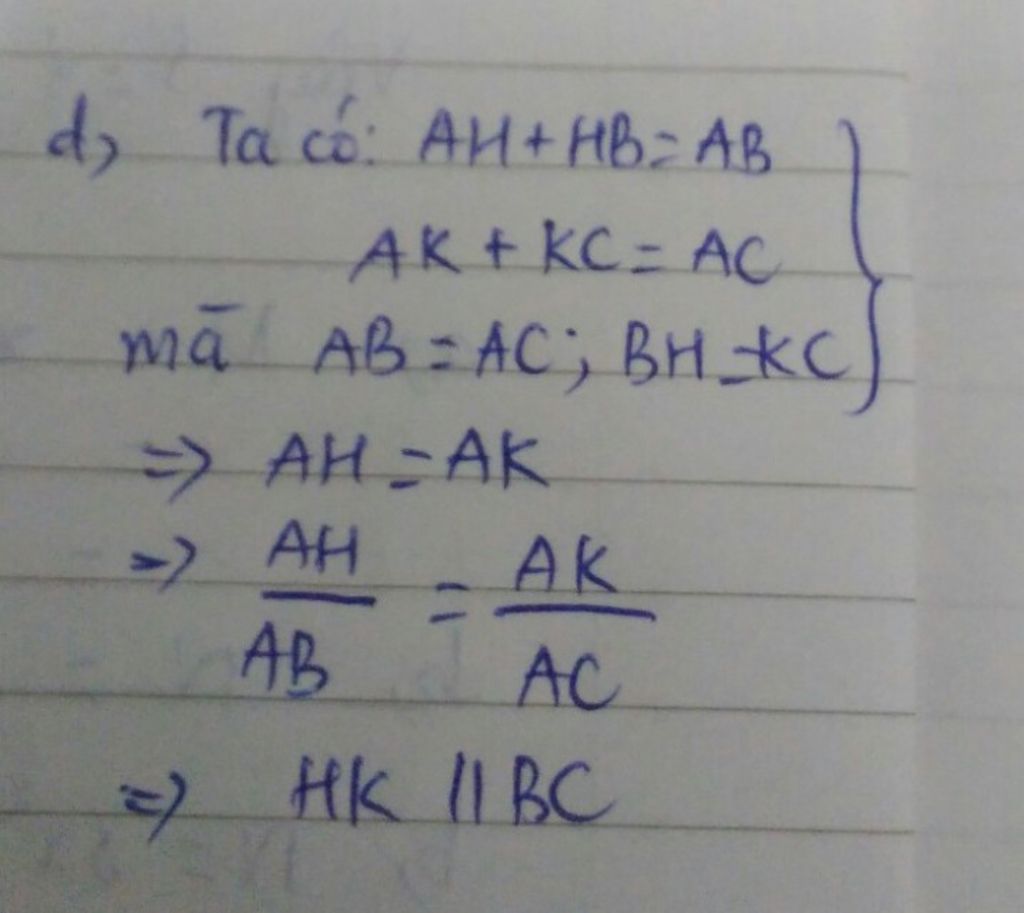 d, Ta có: AH + HB = AB
AK + KC = AC
mà AB = AC; BH = KC
=> AH = AK
=> AH/AB = AK/AC
=> HK // BC